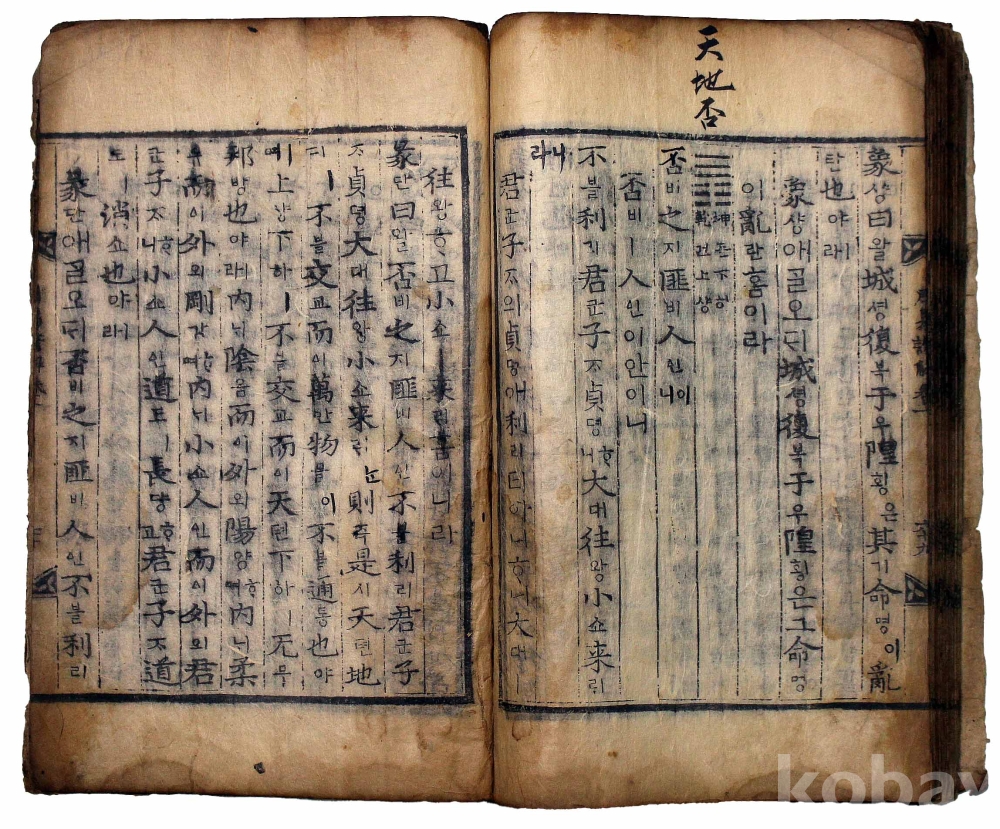 天地否
象샹曰왈城셩復부于우隍황은其기命명이亂
란也야래
象샹애골오디城셩復부于우隍황은그命명
이亂란홈이라
坤곤下하
乾건上샹
否비之지匪비人인이니
否비ㅣ人인이안이니
不블利리君군子ᄌ貞뎡ᄒᆞ니大대往왕小쇼来ㅣ리
니라
君군子ᄌ의貞뎡애利리티아니ᄒᆞ니大대
往왕ᄒᆞ고小쇼ㅣ来ᄅᆡ홈이니라
彖단曰왈否비之지匪비人인不블利리君군子
ᄌ貞뎡大대往왕小쇼来ᄅᆡᄂᆞᆫ則즉是시天텬地
디ㅣ不블交교而이萬만物믈이不블通통也야
ㅣ며上샹下하ㅣ不블交교而이天텬下하ㅣ无무
邦방也야래內ᄂᆡ陰음而이外외陽양ᄒᆞ며內ᄂᆡ柔
유而이外외剛강ᄒᆞ며內ᄂᆡ小쇼人인而이外외君
군子ᄌᄒᆞ니小쇼人인道도ㅣ長댱ᄒᆞ고君군子ᄌ道
도ㅣ消쇼也야래
彖단애골오디否비之지匪비人인不블利리
kobay